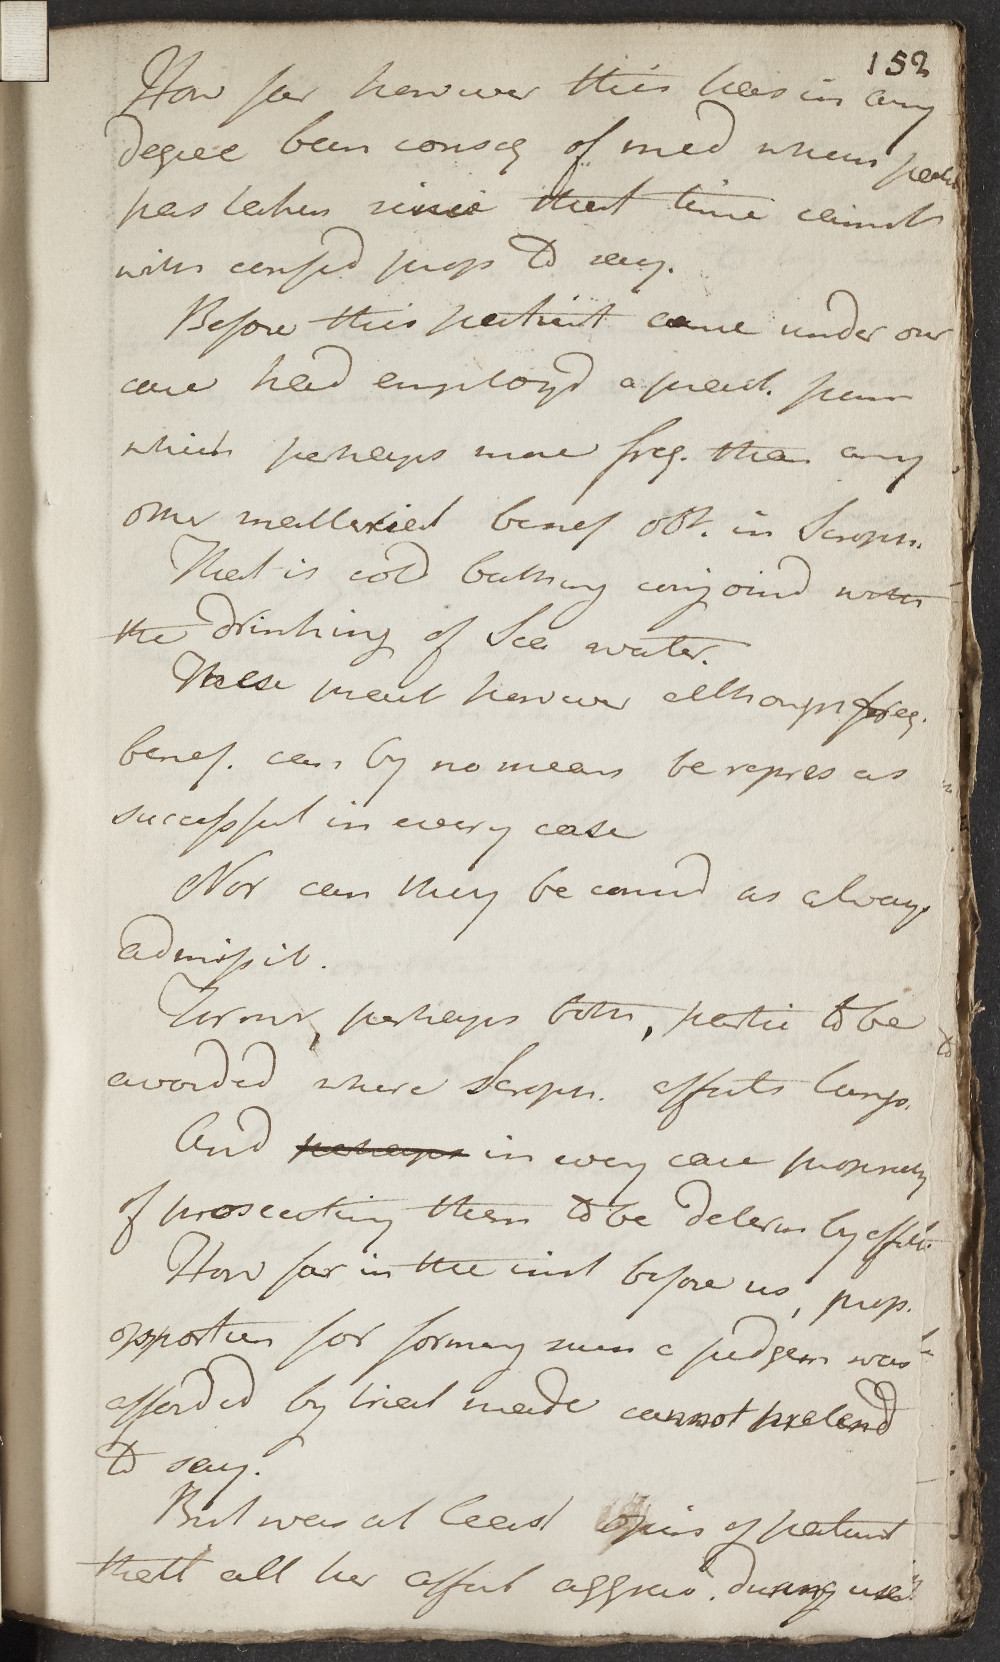 152
How far however this has in any
degree been conseq of med which patient
has taken since that time cannot
with confid pretend to say.
Before this patient came under our
care had employd a pract. from
which perhaps more freq. than any
other matteriel benef obt. in Scroph.
That is cold bathing conjoind with
the drinking of Sea water.
These pract however although freq.
benef. can by no means be repres as
successful in every case
Nor can they be consid as always
admissib.
Former, perhaps both, partic to be
avoided where Scroph. affects lungs.
And perhaps in every case propriety
of prosecuting them to be determ by effects.
How far in the inst before us, prop.
opportun for forming such a judgem was
afforded by trial made cannot pretend
to say.
But was at least opin of patient
that all her affect aggrav. during use